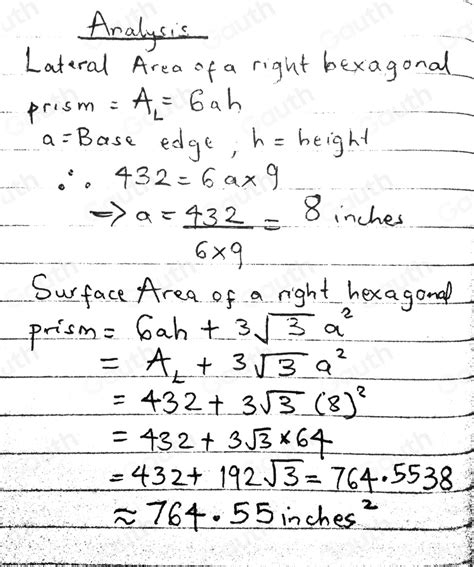 Analysis
Lateral Area of a right hexagonal
prism = A_L = 6ah
a = Base edge, h = height
∴ 432 = 6a×9
⇒ a = 432/6×9 = 8 inches
Surface Area of a right hexagonal
prism = 6ah + 3√3 a²
= A_L + 3√3 a²
= 432 + 3√3 (8)²
= 432 + 3√3 × 64
= 432 + 192√3 = 764.5538
≈ 764.55 inches²